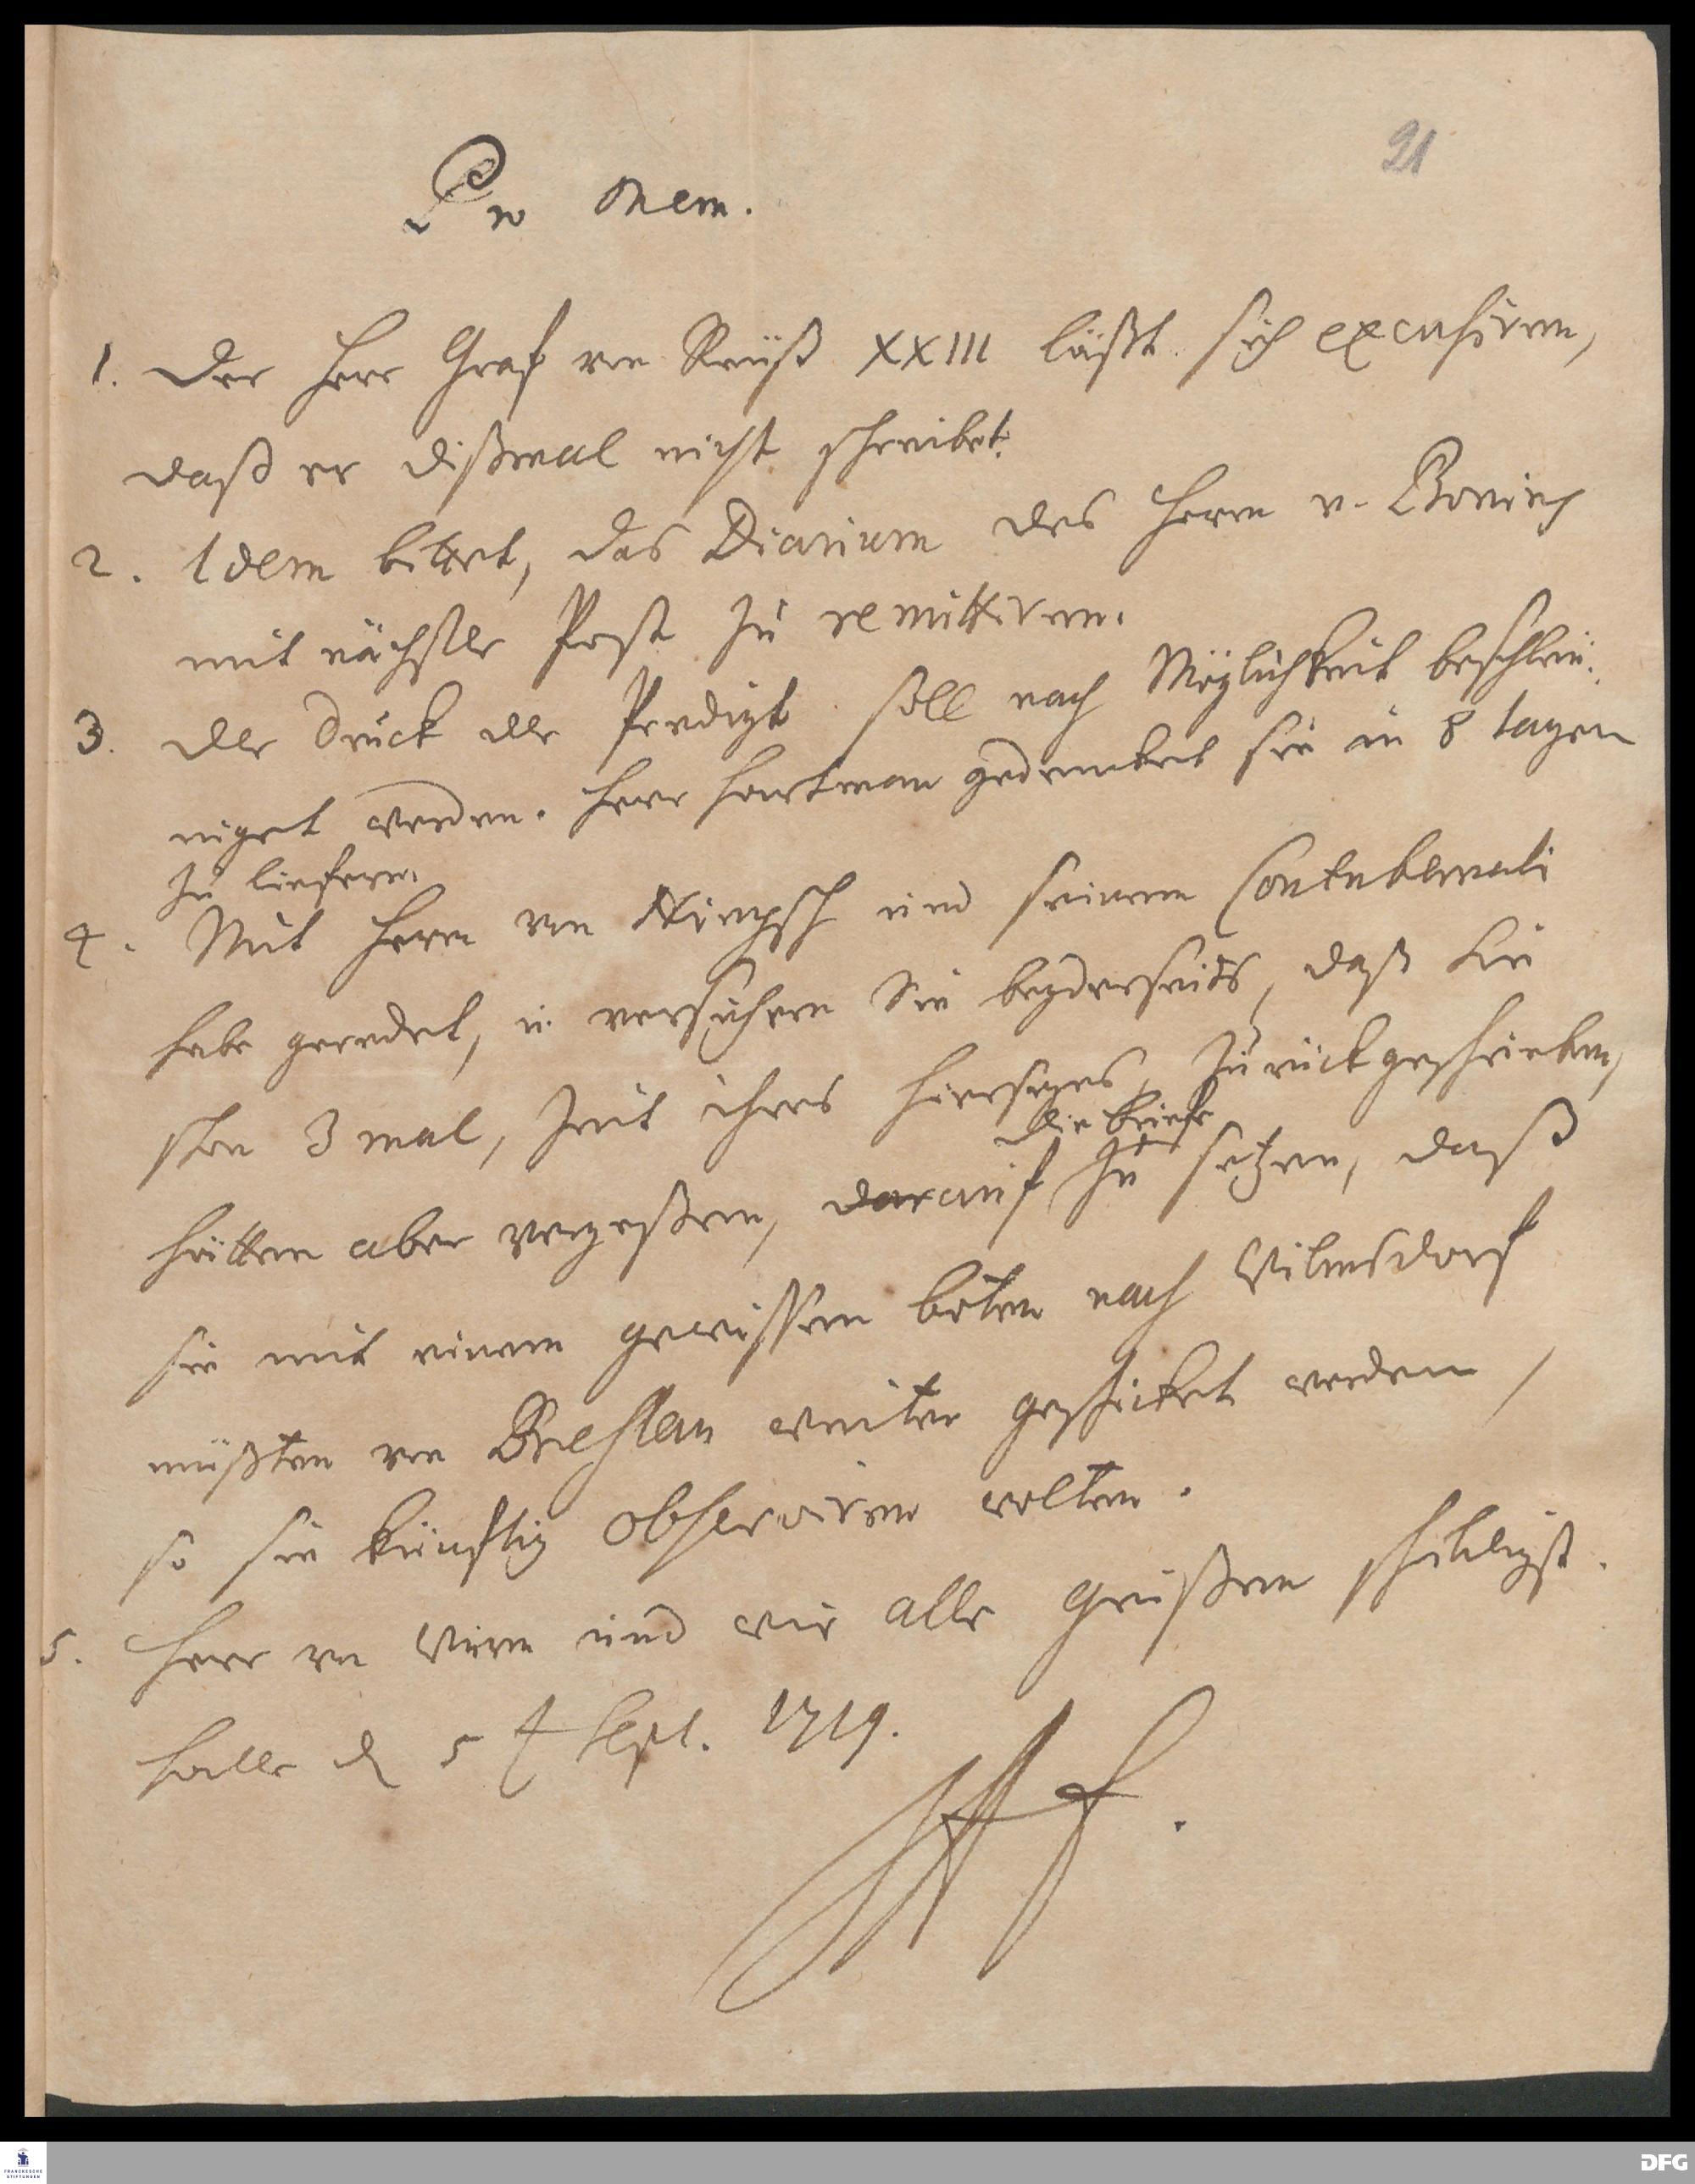 21
Pro Mem.
1. Der Herr Graf von Reuß XXIII läßt sich excusiren,
daß er dißmal nicht schreibet.
2. Idem bittet, das Diarium des Herrn v. Bonin
mit nächster Post zu remittiren.
3. Der Druck der Predigt soll nach Möglichkeit beschleu-
niget werden. Herr Hartman gedencket sie in 8 tagen
zu liefern.
4. Mit Herrn von und seinem Contubernali
habe geredet, u. versichern Sie beyderseits, daß Sie
schon 3 mal, Zeit ihres hierseyns, zurückgeschrieben,
hätten aber vergeßen, darauf zu setzen, daß
die briefe
sie mit einem gewissen boten nach Wilmsdorf
müßten von Breslau weiter geschicket werden,
so sie künftig observiren wolten.
5. Herr von Wurm und wir alle grüßen schuldigst.
Halle d. 5 Sept. 1719.
DFG
FRANCKESCHE
STIFTUNGEN